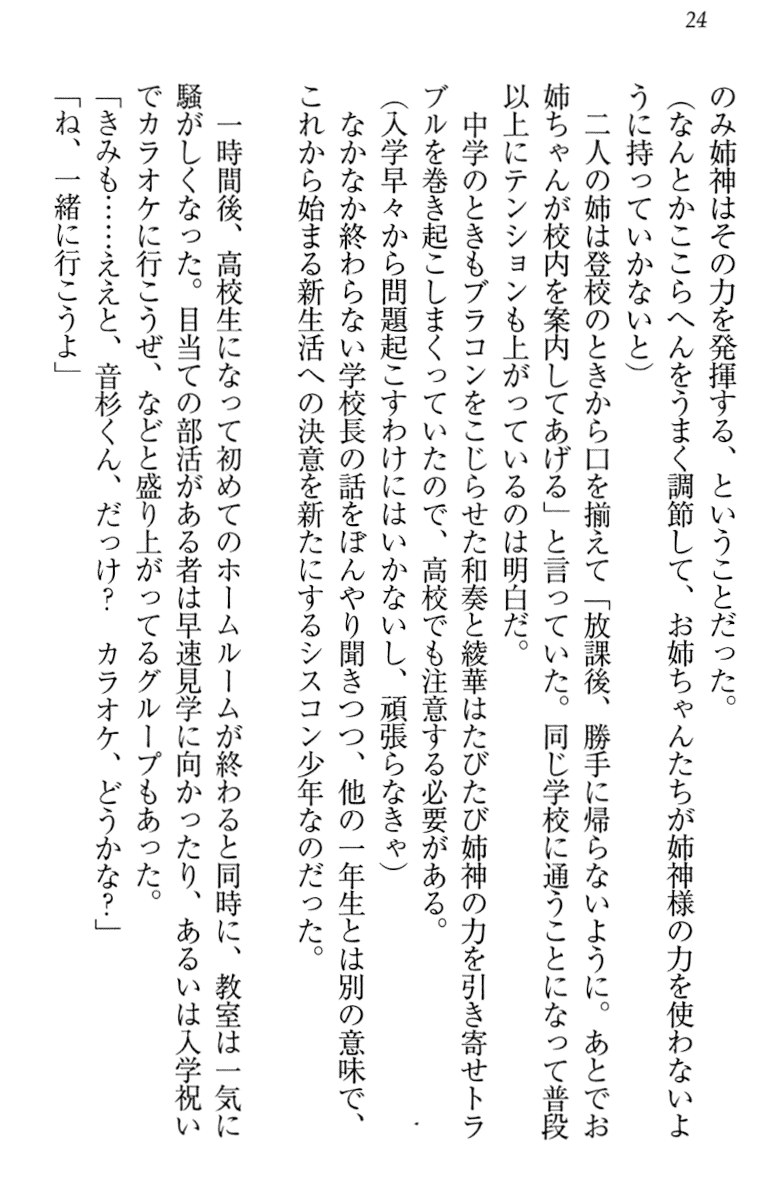 24
のみ姉神はその力を発揮する、ということだった。
（なんとかここらへんをうまく調節して、お姉ちゃんたちが姉神様の力を使わないよ
うに持っていかないと）
　二人の姉は登校のときから口を揃えて「放課後、勝手に帰らないように。あとでお
姉ちゃんが校内を案内してあげる」と言っていた。同じ学校に通うことになって普段
以上にテンションも上がっているのは明白だ。
　中学のときもブラコンをこじらせた和奏と綾華はたびたび姉神の力を引き寄せトラ
ブルを巻き起こしまくっていたので、高校でも注意する必要がある。
（入学早々から問題起こすわけにはいかないし、頑張らなきゃ）
　なかなか終わらない学校長の話をぼんやり聞きつつ、他の一年生とは別の意味で、
これから始まる新生活への決意を新たにするシスコン少年なのだった。
　一時間後、高校生になって初めてのホームルームが終わると同時に、教室は一気に
騒がしくなった。目当ての部活がある者は早速見学に向かったり、あるいは入学祝い
でカラオケに行こうぜ、などと盛り上がってるグループもあった。
「きみも……ええと、音杉くん、だっけ？　カラオケ、どうかな？」
「ね、一緒に行こうよ」